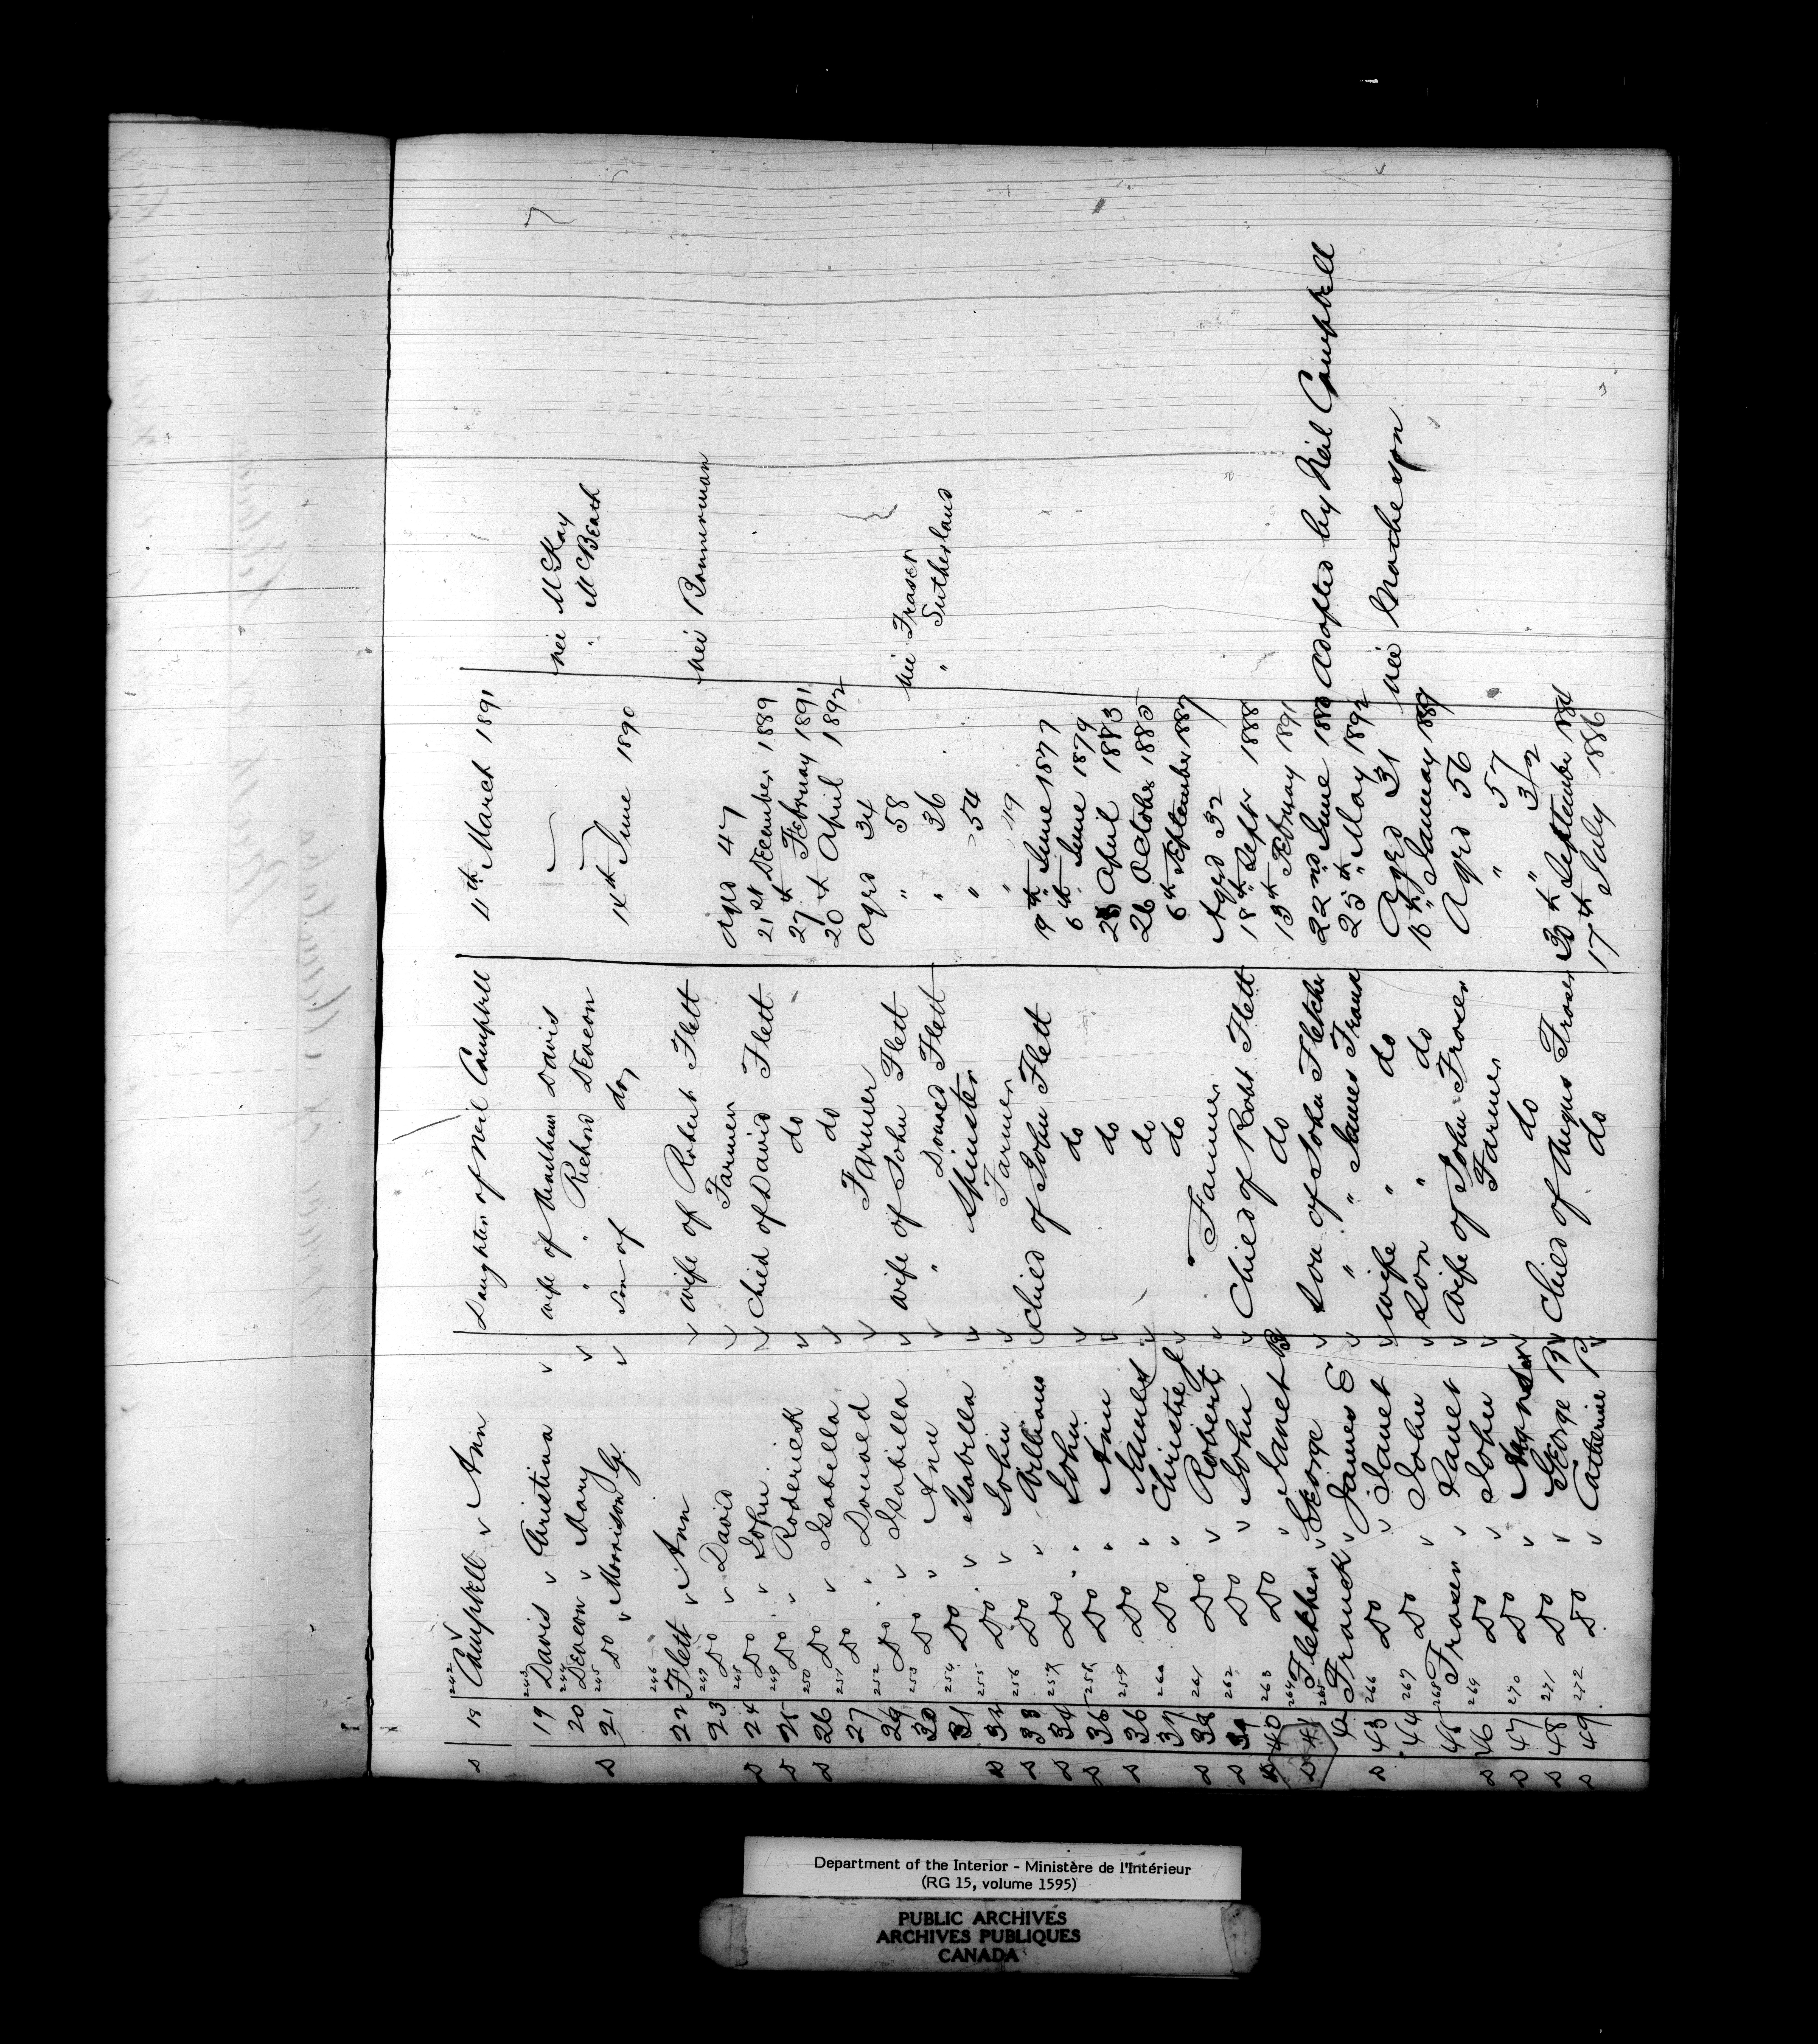 242
s 18 Campbell v Ann Daughter of Neil Campbell 11th March 1891
243
19 Davis v Christina v wife of Matthew Davis nee McKay
244
20 Deacon v Mary v " " Richard Deacon " McBeath
245
s 21 Do v Morrison G. v Son of do 14th June 1890
246
22 Flett v Ann v wife of Robert Flett nee Bannerman
247
23 Do v David v Farmer Aged 47
248
s 24 Do v John v Child of David Flett 21st December 1889
249
s 25 Do v Roderick v do 27th February 1891
250
s 26 Do v Isabella v do 20th April 1892
251
27 Do " Donald v Farmer Aged 34
252
29 Do v Isabella v wife of John Flett " 58 nee Fraser
253
30 Do " Ann v " Donald Flett " 36 " Sutherland
254
31 Do v Isabella v Spinster " 54
255
s 32 Do v John v Farmer " 49
256
s 33 Do " William Child of John Flett 19th June 1877
257
s 34 Do " John v do 6th June 1879
258
s 35 Do " Ann v do April 1883
259
s 36 Do " James v do 26 October 1885
260
37 Do " Christie v do 6th September 1887
261
s 38 Do v Robert v Farmer Aged 32
262
s 39 Do v John v Child of Robt Flett 18th Sept 1888
263
s 40 Do " Janet B do 13th February 1891
264
s 41 Fletcher v George v Son of John Fletcher 22nd June Adopted by Neil Campbell
265
42 Franck v James E v " " James Franck 25th May 1892
266
s 43 Do v Janet v wife " do Aged 31 nee Matheson
267
44 Do v John v Son " do 16th January 1889
268
45 Fraser v Janet v Wife of John Fraser Aged 56
269
s 46 Do v John v Farmer " 57
270
s 47 Do v Angus v do " 32
271
s 48 Do v George R v Child of Angus Fraser 30th September
272
s 49 Do v Catherine P v do 17th July 1886
Department of the Interior - Ministère de l'Intérieur
(RG 15, volume 1595)
PUBLIC ARCHIVES
ARCHIVES PUBLIQUES
CANADA